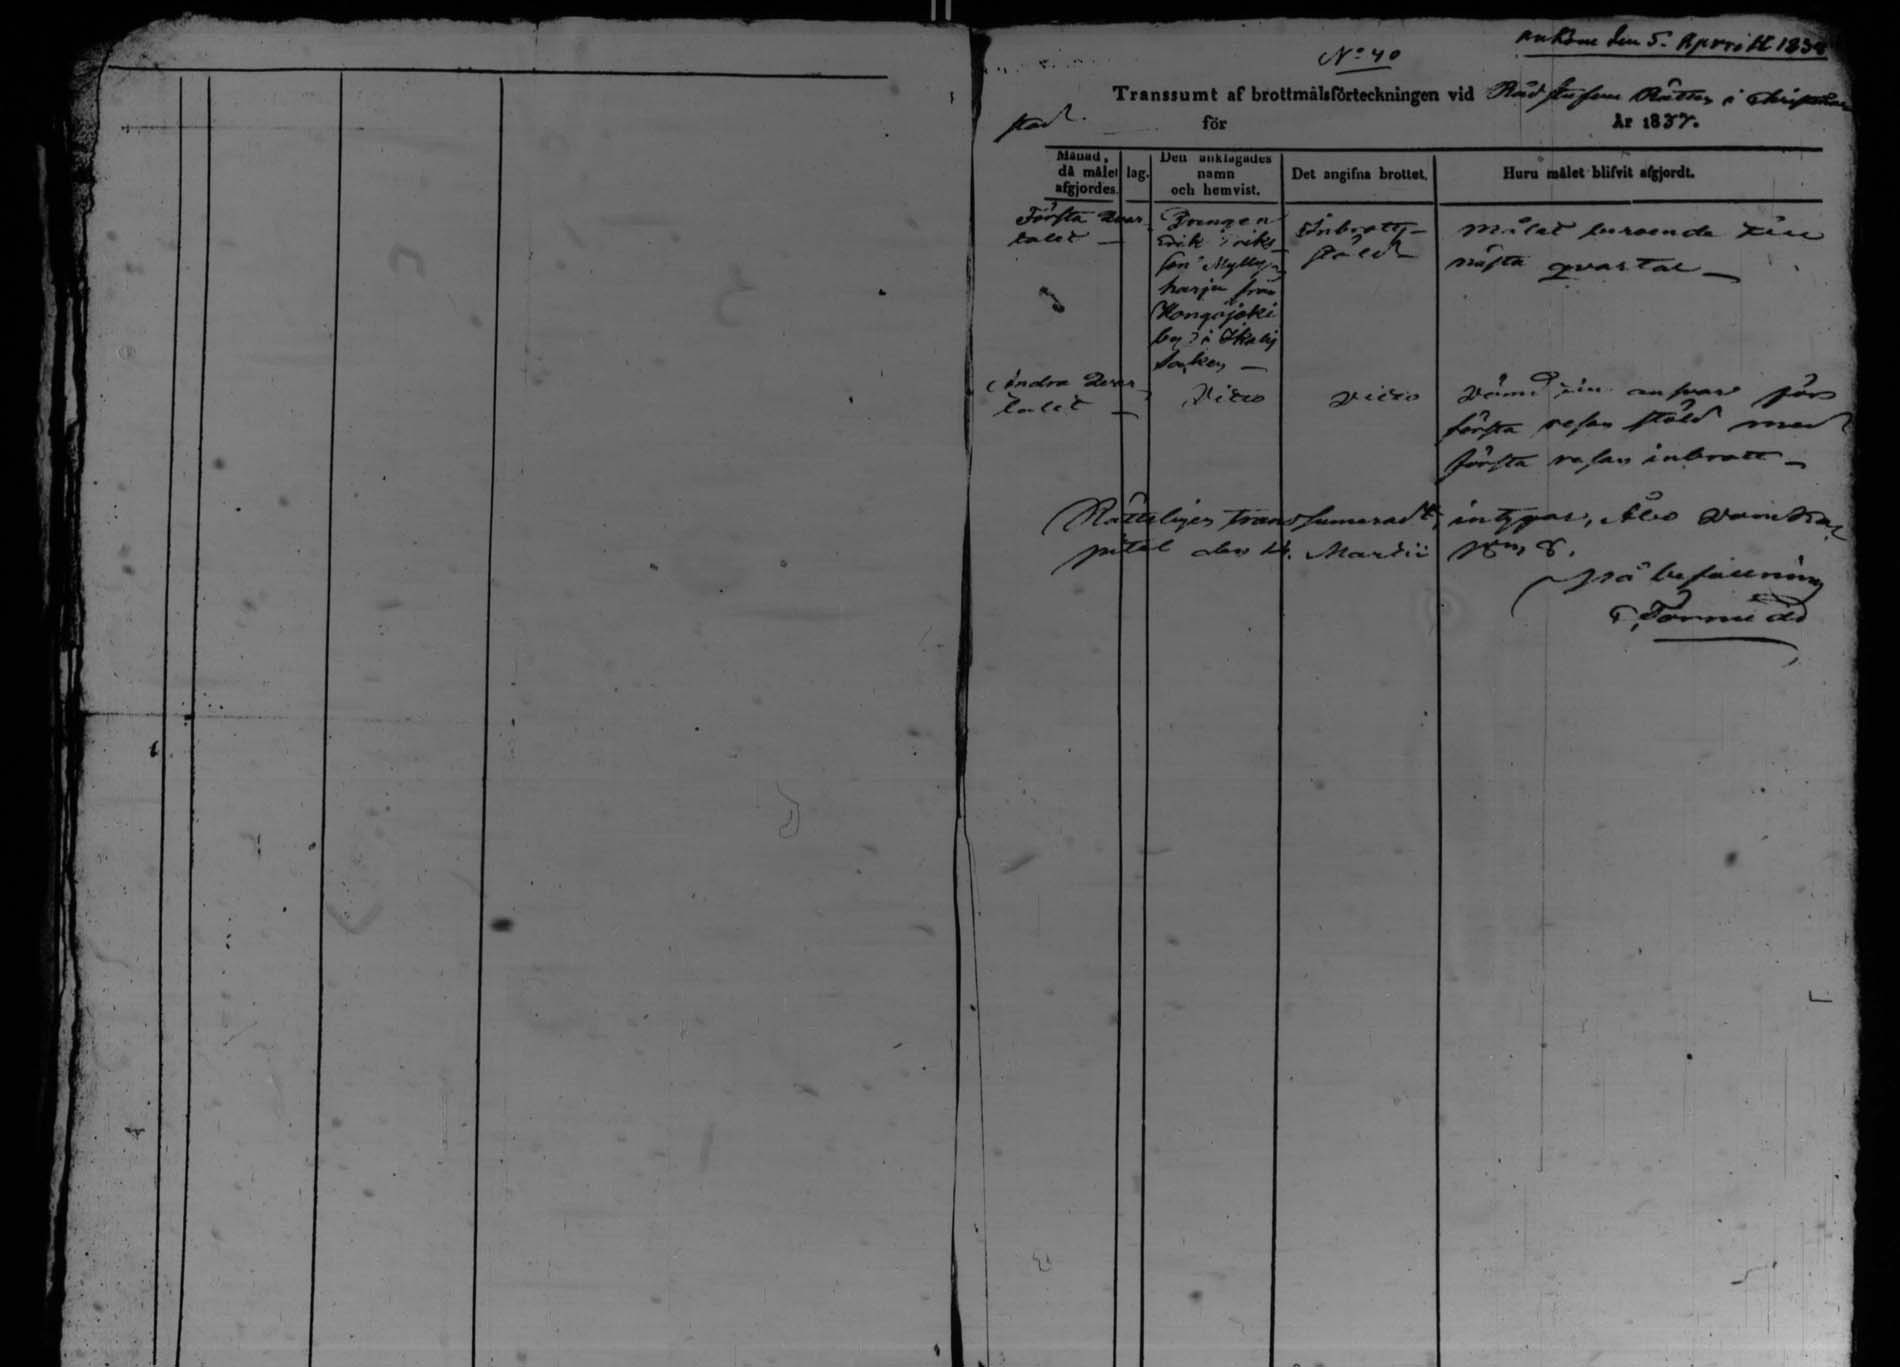 ankom den 5. Aprill 1838
N:o 40
Transsumt af brottmålsförteckningen vid Rådstufvu Rätten i Christina
stad för År 1837.
Månad, då målet afgjordes. lag. Den anklagades namn och hemvist. Det angifna brottet. Huru målet blifvit afgjordt.
Första Qvar
talet —
Drengen
Erik Eriks
son Mylly
harju från
Kongajoki
by i Ikalis
Socken —
Inbrotts
stöld
Målet beroende till
nästa qvartal —
Andra Qvar
talet —
Dito
Dito
Dömd till ansvar för
första resan stöld med
första resan inbrott —
Rätteligen transsumeradt, intygar, Åbo Domka
pitel den 14. Martii
På befallning